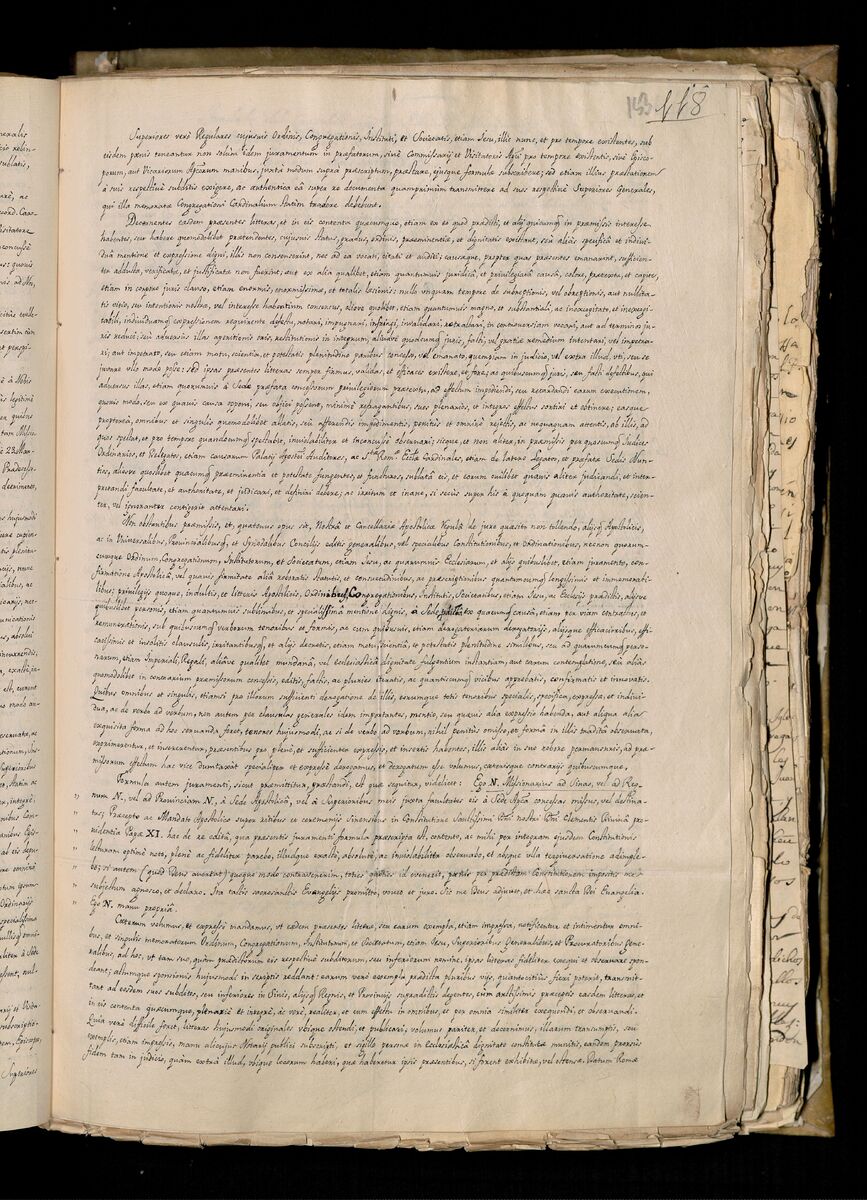 153 118
Superiores verò Regulares cujusvis Ordinis, Congregationis, Instituti, et Societatis, etiam Jesu, illic nunc, et pro tempore existentes, sub
eisdem pœnis teneantur non solùm idem juramentum in præfatorum, sivè Commissarij et Visitatoris Aplici pro tempore existentis, sivè Episco-
porum, aut Vicariorum Aplicorum manibus, juxta modum supra præscriptum, præstare, ejusque formulæ subscribere; sed etiam illius præstationem
à suis respectivè subditis exigere, ac authentica eâ supra re documenta quamprimùm transmittere ad suos respectivè Superiores Generales,
qui illa memoratæ Congregationi Cardinalium statim tradere debebunt.
Decernentes easdem præsentes litteras, et in eis contenta quæcumque, etiam ex eo quod prædicti, et alij quicumq in præmissis interesse
habentes, seu habere quomodolibet prætendentes, cujusvis status, gradus, ordinis, præeminentiæ, et dignitatis existant, seù aliàs specificâ et indivi-
duâ mentione et expressione digni, illis non consenserint, nec ad ea vocati, citati et auditi, causæque, propter quas præsentes emanarunt, sufficien-
ter adductæ, verificatæ, et justificatæ non fuerint, aut ex aliâ qualibet, etiam quantumvis juridicâ, et privilegiatâ causâ, colore, prætextu, et capite,
etiam in corpore juris clauso, etiam enormis, enormissimæ, et totalis læsionis: nullo unquam tempore de subreptionis, vel obreptionis, aut nullita-
tis vitio, seu intentionis nostræ, vel interesse habentium consensus, aliove quolibet, etiam quantumvis magno, et substantiali, ac inexcogitato, et inexcogi-
tabili, individuamq expressionem requirente defectu, notari, impugnari, infringi, invalidari, retractari, in controversiam vocari, aut ad terminos ju-
ris reduci; seù adversus illas aperitionis oris restitutionis in integrum, aliudve quodcumq juris, facti, vel gratiæ remedium intentari, vel impetra-
ri; aut impetrato, seu etiam motu, scientia, et potestatis plenitudine paribus concesso, vel emanato, quempiam in judicio, vel extra illud, uti, seu se
juvare ullo modo posse: sed ipsas præsentes litteras semper firmas, validas, et efficaces existere, et fore; ac quibuscumq juris, seu facti defectibus, qui
adversus illas, etiam quorumvis à Sede præfata concessorum privilegiorum prætextu, ad effectum impediendi, seu retardandi earum executionem,
quovis modo, seu ex quavis causa opponi, seu objici possent, minimè refragantibus, suos plenarios, et integros effectus sortiri et obtinere; easque
proptereà, omnibus et singulis quomodolibet allatis, seu afferendis impedimentis, penitùs et omninò rejectis, ac nequaquam attentis, ab illis, ad
quos spectat, et pro tempore quandocumq spectabit, inviolabiliter et inconcussè observari; sicque, et non aliter, in præmissis per quoscumq Judices
Ordinarios, et Delegatos, etiam causarum Palatij Apostci Auditores, ac Stæ Romæ Ecclæ Cardinales, etiam de latere Legatos, et præfatæ Sedis Nun-
tios, aliosve quoslibet quacumq præeminentia et potestate fungentes, et functuros, sublatâ eis, et eorum cuilibet quavis aliter judicandi, et inter-
pretandi facultate, et authoritate, et judicari, et definiri debere; ac irritum et inane, si secus super his à quoquam quavis authoritate, scien-
ter, vel ignoranter contigerit attentari.
Non obstantibus præmissis, et, quatenus opus sit, Nostrâ et Cancellariæ Apostolicæ Regulâ de jure quæsito non tollendo, alijsq Apostolicis,
ac in Universalibus, Provincialibusq, et Synodalibus Concilijs editis generalibus, vel specialibus Constitutionibus, et Ordinationibus, necnon quorum-
cumque Ordinum, Congregationum, Institutorum, et Societatum, etiam Jesu, ac quarumvis Ecclesiarum, et alijs quibuslibet, etiam juramento, con-
firmatione Apostolicâ, vel quavis firmitate aliâ roboratis statutis, et consuetudinibus, ac præscriptionibus quantumcumq longissimis et immemorabi-
libus; privilegijs quoque, indultis, et litteris Apostolicis, Ordinibus, Congregationibus, Institutis, Societatibus, etiam Jesu, ac Ecclesijs prædictis, alijsve
quibuslibet personis, etiam quantumvis sublimibus, et specialissimâ mentione dignis, à Sede præfata ex quacumq causâ, etiam per viam contractus, et
remunerationis, sub quibuscumq verborum tenoribus et formis, ac cum quibusvis, etiam derogatoriarum derogatorijs, alijsque efficacioribus, effi-
cacissimis et insolitis clausulis, irritantibusq, et alijs decretis, etiam motu, scientiâ, et potestatis plenitudine similibus, seu ad quarumcumq perso-
narum, etiam Imperiali, Regali, aliâve qualibet mundanâ, vel ecclesiasticâ dignitate fulgentium instantiam, aut earum contemplatione, seu aliàs
quomodolibet in contrarium præmissorum concessis, editis, factis, ac pluries iteratis, ac quantiscumq vicibus approbatis, confirmatis et innovatis.
Quibus omnibus et singulis, etiamsi pro illorum sufficienti derogatione de illis, eorumque totis tenoribus specialis, specifica, expressa, et indivi-
dua, ac de verbo ad verbum, non autem per clausulas generales idem importantes, mentio, seu quævis alia expressio habenda, aut aliqua alia
exquisita forma ad hoc servanda foret, tenores hujusmodi, ac si de verbo ad verbum, nihil penitùs omisso, et formâ in illis traditâ observatâ,
exprimerentur, et insererentur, præsentibus pro plenè, et sufficienter expressis, et insertis habentes, illis aliàs in suo robore permansuris, ad præ-
missorum effectum hac vice dumtaxàt specialiter et expressè derogamus, et derogatum esse volumus, cæterisque contrarijs quibuscumque.
Formula autem juramenti, sicut præmittitur, præstandi, est quæ sequitur, videlicet: Ego N. Missionarius ad Sinas, vel ad Reg-
„ num N., vel ad Provinciam N., à Sede Apostolicâ, vel à Superioribus meis juxta facultates eis à Sede Aplca concessas missus, vel destina-
„ tus; Præcepto ac Mandato Apostolico super ritibus ac ceremonijs Sinensibus in Constitutione Sanctissimi Dni nostri Dni Clementis Divinâ pro-
„ videntiâ Papæ XI. hac de re editâ, quâ præsentis juramenti formula præscripta est, contento, ac mihi per integram ejusdem Constitutionis
„ lecturam optimè noto, plenè ac fideliter parebo, illudque exactè, absolutè, ac inviolabiliter observabo, et absque ulla tergiversatione adimple-
„ bo; si autem (quod Deus avertat) quoquo modo contravenerim, toties quoties id evenerit, pœnis per prædictam Constitutionem impositis me
„ subjectum agnosco, et declaro. Ita tactis sacrosanctis Evangelijs promitto, voveo et juro. Sic me Deus adjuvet, et hæc sancta Dei Evangelia.
„ Ego N. manu propriâ.
Cæterum volumus, et expressè mandamus, ut eædem præsentes litteræ, seu earum exempla, etiam impressa, notificentur et intimentur omni-
bus, et singulis memoratorum Ordinum, Congregationum, Institutorum, et Societatum, etiam Jesu, Superioribus Generalibus, et Procuratoribus Gene-
ralibus, ad hoc, ut tam suo, quàm prædictorum eis respectivè subditorum, seu inferiorum nomine, ipsas litteras fideliter exequi et observare spon-
deant; ac illumque sponsionis hujusmodi in scriptis reddant: earum verò exempla prædicta pluribus vijs, quanto citiùs fieri poterit, transmit-
tant ad eosdem suos subditos, seu inferiores in Sinis, alijsq Regnis, et Provincijs supradictis degentes, cùm arctissimis præceptis easdem litteras, et
in eis contenta quæcumque, plenariè et integrè, ac verè, realiter, et cum effectu in omnibus, et per omnia similiter exequendi, et observandi.
Quia verò difficile foret, litteras hujusmodi originales ubique ostendi, et publicari, volumus pariter, et decernimus, illarum transumptis, seu
exemplis, etiam impressis, manu alicujus Notarij publici subscripti, et sigillo personæ in Ecclesiasticâ dignitate constitutæ munitis, eamdem prorsùs
fidem tam in judicio, quàm extrà illud, ubique locorum haberi, quæ haberetur ipsis præsentibus, si forent exhibitæ, vel ostensæ. Datum Romæ